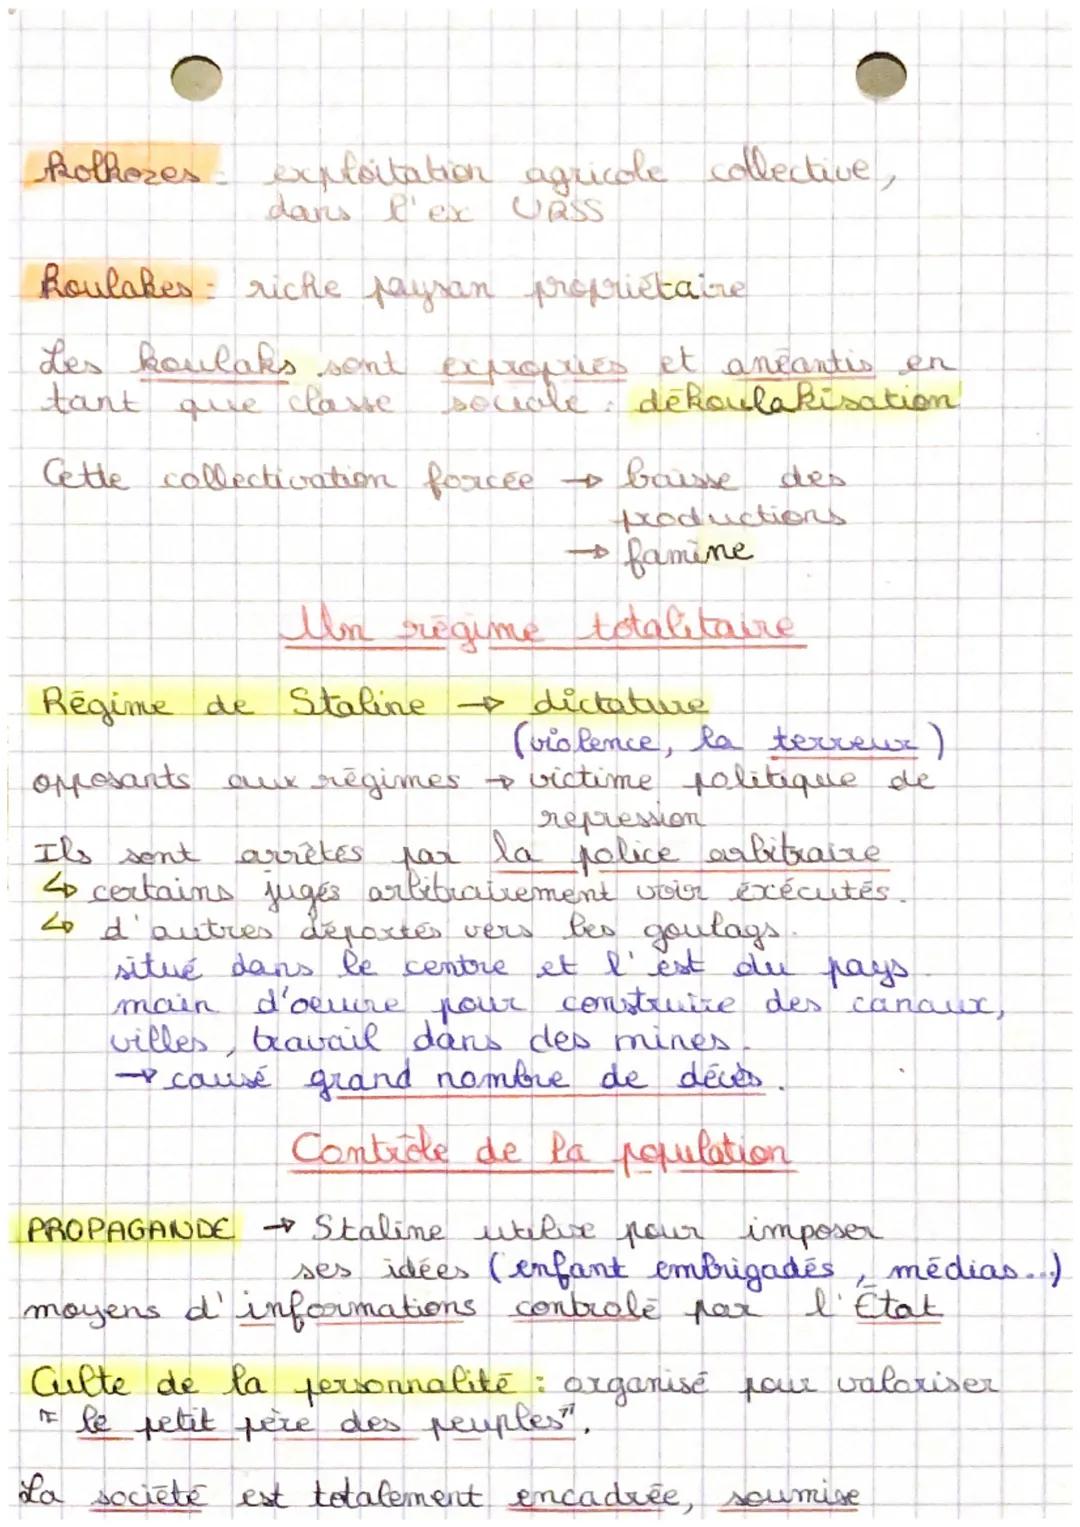 Kolhozes : exploitation agricole collective,
dans l'ex URSS
Koulakes : riche paysan propriétaire
Les koulaks sont expropriés et anéantis en
tant que classe sociale : dékoulakisation
Cette collectivation forcée → baisse des
productions
→ famine
Un régime totalitaire
Régime de Staline → dictature
(violence, la terreur)
opposants aux régimes → victime politique de
repression
Ils sont arrêtés par la police arbitraire
↳ certains jugés arbitrairement voir éxécutés.
↳ d'autres déportés vers les goulags.
situé dans le centre et l'est du pays.
main d'oeuvre pour construire des canaux,
villes, travail dans des mines.
→ causé grand nombre de décès.
Contrôle de la population
PROPAGANDE → Staline utilise pour imposer
ses idées (enfant embrigadés, médias...)
moyens d'informations controlé par l'État
Culte de la personnalité : organisé pour valoriser
"le petit père des peuples".
La société est totalement encadrée, soumise